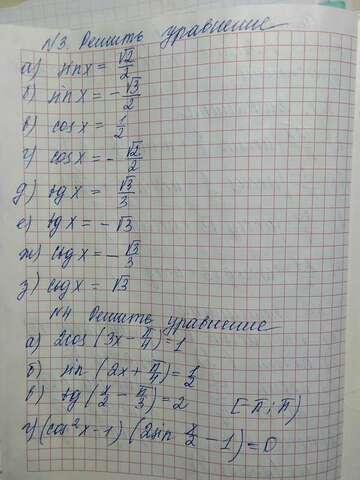 N3 Решить уравнение
а) sin x = √2/2
б) sin x = -√3/2
в) cos x = 1/2
г) cos x = -√2/2
д) tg x = √3/3
е) tg x = -√3
ж) ctg x = -√3/3
з) ctg x = √3
N4 Решить уравнение
а) 2cos (3x - π/4) = 1
б) sin (2x + π/4) = 1/2
в) tg (x/2 - π/3) = 2 [-π; π)
г) (cos²x - 1) (2sin x/2 - 1) = 0